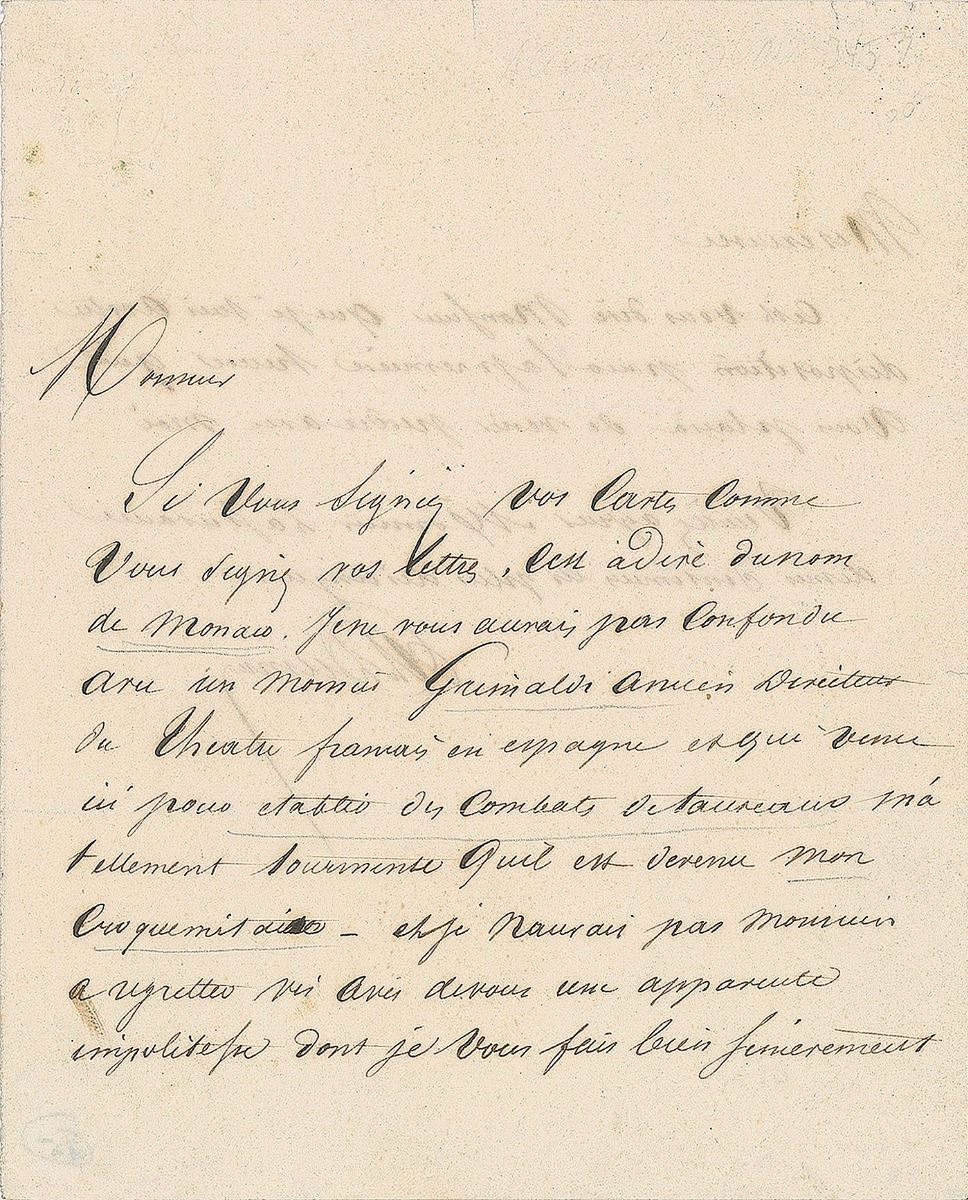 Monsieur
Si Vous Signiez vos Cartes Comme
Vous signez vos lettres, C'est àdire dunom
de Monaco. Jene vous aurais pas Confondu
avec un Monsieur Grimaldi Ancien Directeur
du Theatre francais en espagne et qui venu
ici pour etablir des Combats de taureaux m'a
tellement tourmenté Quil est devenu mon
Croquemitaine – et je Naurais pas Monsieur
a regretter vis avis devous une apparente
impolitesse dont je Vous fais bien sincerement